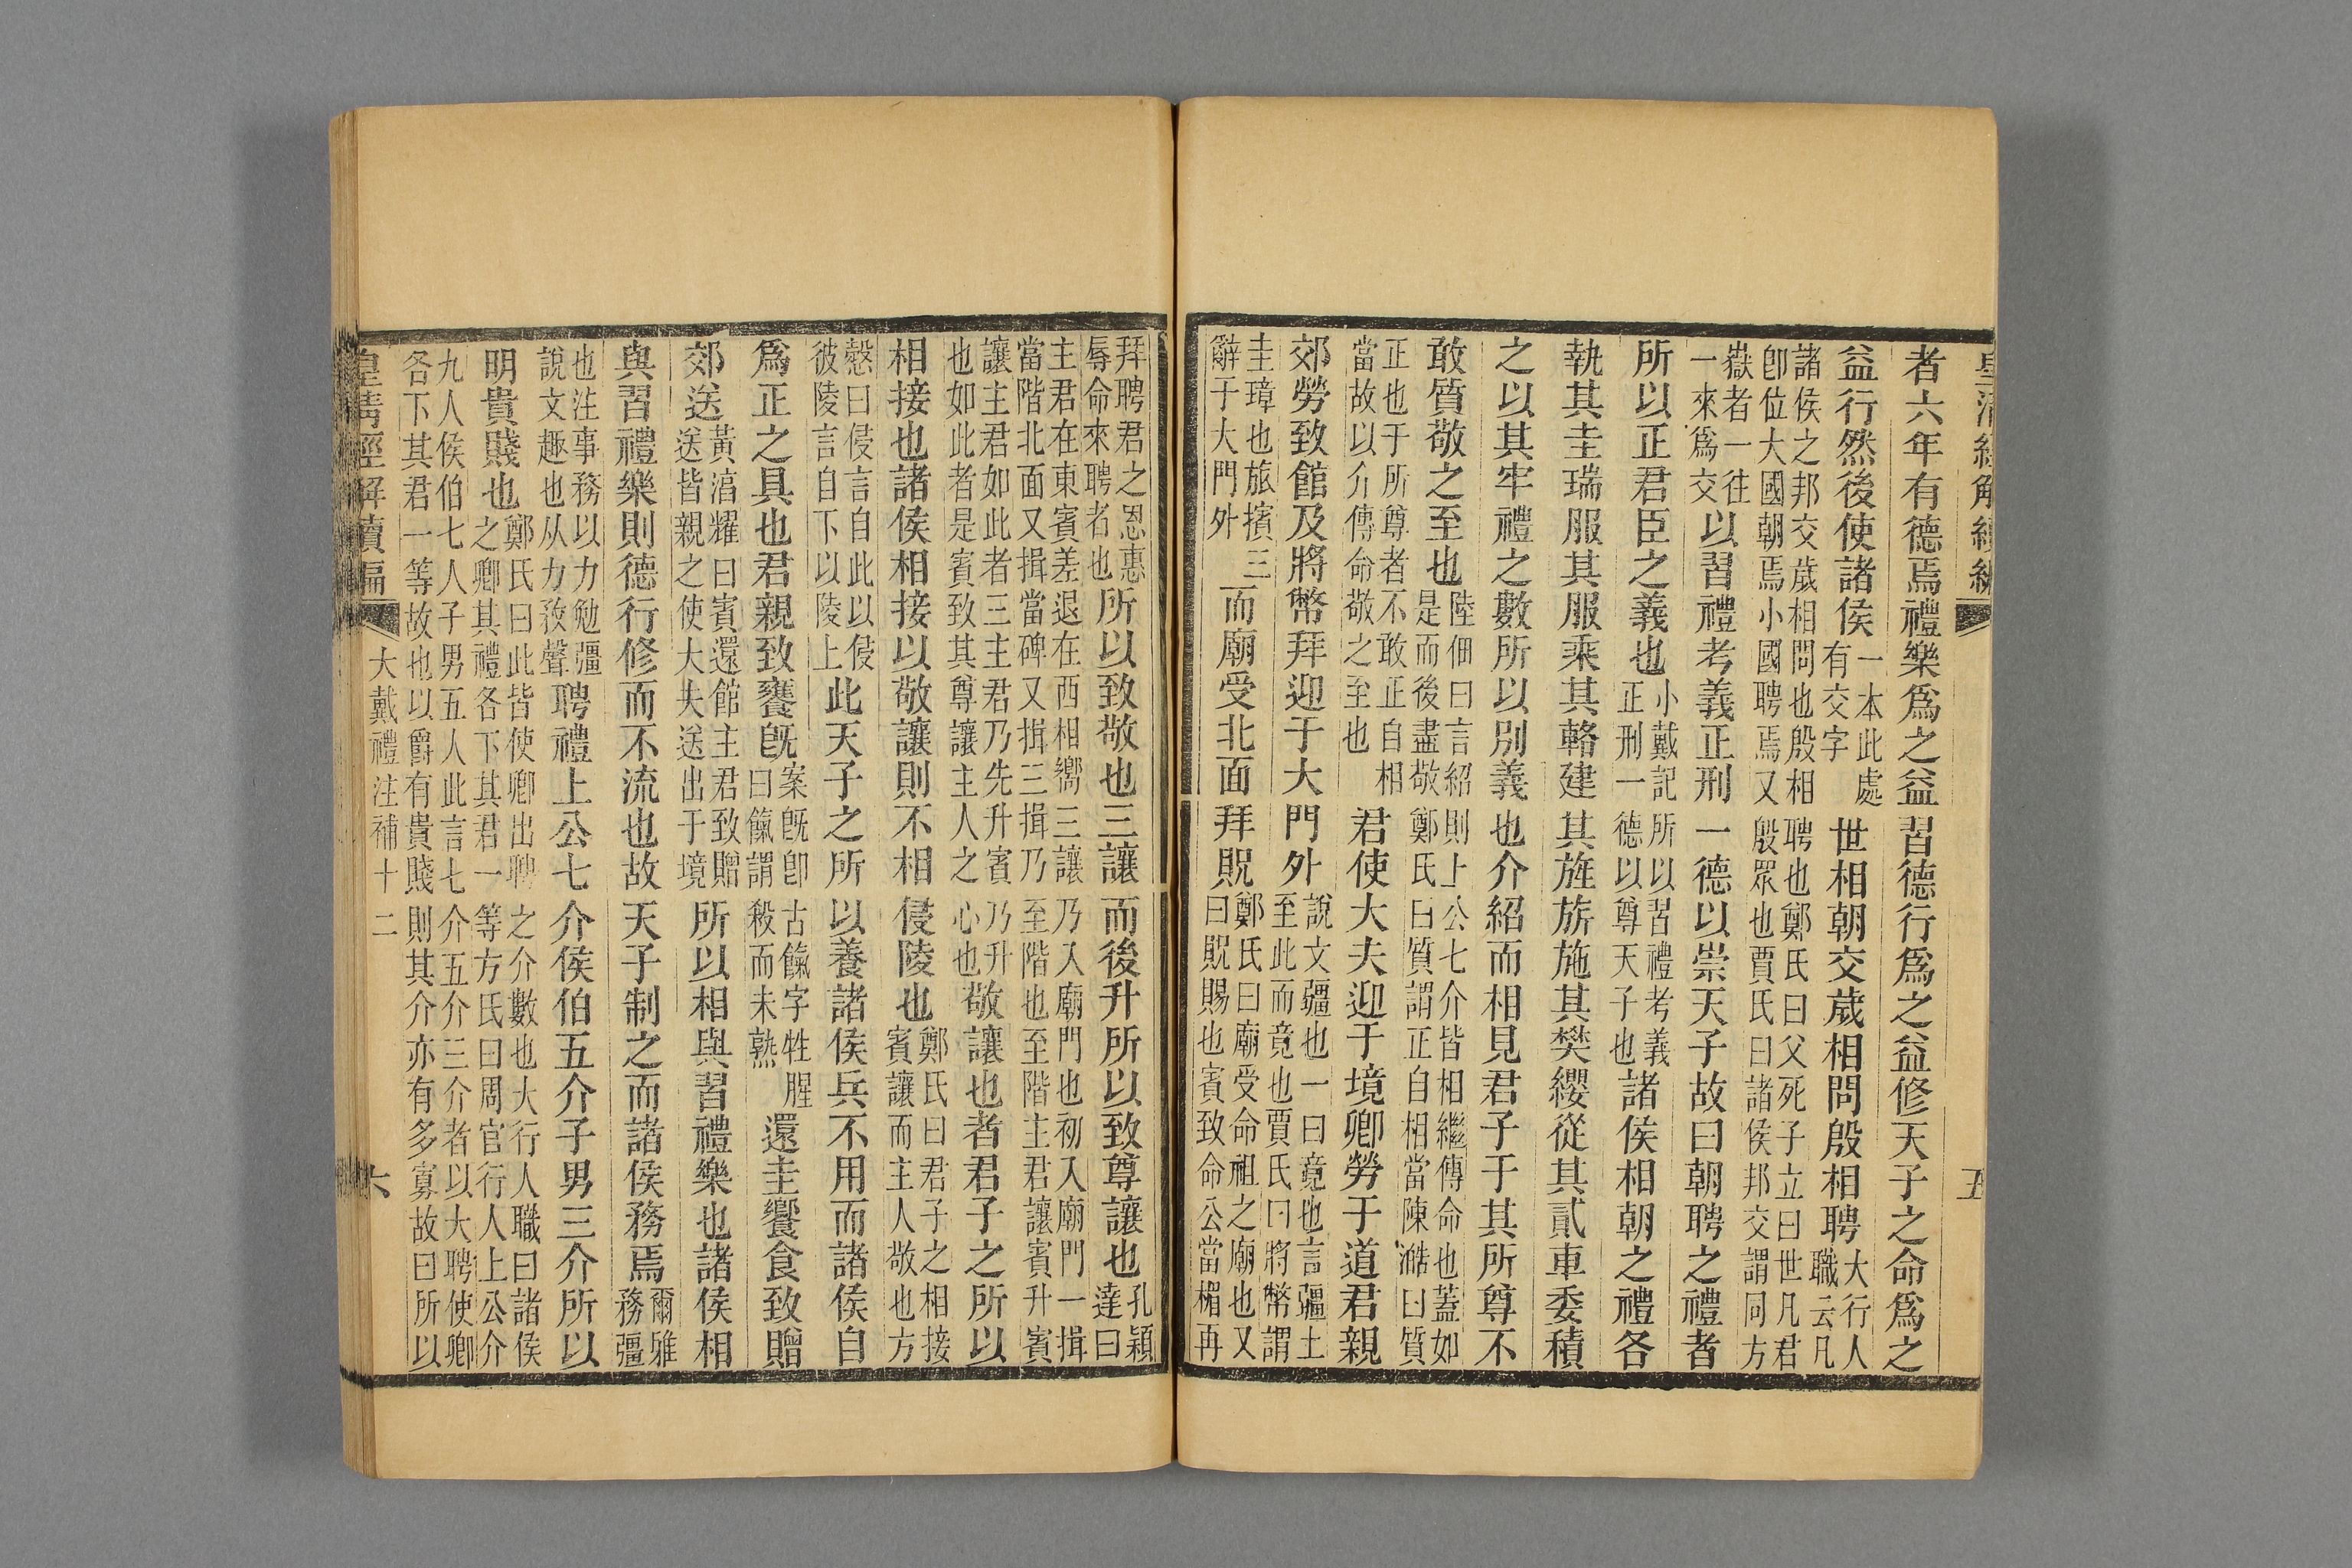 皇清經解續編　五
者六年有德焉禮樂爲之益習德行爲之益修天子之命爲之
益行然後使諸侯一本此處有交字世相朝交歲相問殷相聘大行人職云凡
諸侯之邦交歲相問也殷相聘也鄭氏曰父死子立曰世凡君
卽位大國朝焉小國聘焉又殷眾也賈氏曰諸侯邦交謂同方
嶽者一往一來爲交以習禮考義正刑一德以崇天子故曰朝聘之禮者
所以正君臣之義也小戴記所以習禮考義正刑一德以尊天子也諸侯相朝之禮各
執其圭瑞服其服乘其輅建其旌旂施其樊纓從其貳車委積
之以其牢禮之數所以別義也介紹而相見君子于其所尊不
敢質敬之至也陸佃曰言紹則上公七介皆相繼傳命也蓋如是而後盡敬鄭氏曰質謂正自相當陳澔曰質
正也于所尊者不敢正自相當故以介傳命敬之至也君使大夫迎于境卿勞于道君親
郊勞致館及將幣拜迎于大門外說文疆也一曰竟也言疆土至此而竟也賈氏曰將幣謂
圭璋也旅擯三辭于大門外而廟受北面拜貺鄭氏曰廟受命祖之廟也又曰貺賜也賓致命公當楣再
拜聘君之恩惠辱命來聘者也所以致敬也三讓而後升所以致尊讓也孔穎達曰
主君在東賓差退在西相嚮三讓乃入廟門也初入廟門一揖
當階北面又揖當碑又揖三揖乃至階也至階主君讓賓升賓
讓主君如此者三主君乃先升賓乃升也如此者是賓致其尊讓主人之心也敬讓也者君子之所以
相接也諸侯相接以敬讓則不相侵陵也鄭氏曰君子之相接賓讓而主人敬也方
慤曰侵言自此以侵彼陵言自下以陵上此天子之所以養諸侯兵不用而諸侯自
爲正之具也君親致饔旣案旣卽古餼字牲腥曰餼謂殺而未熟還圭饗食致贈
郊送黃溍耀曰賓還館主君致贈送皆親之使大夫送出于境所以相與習禮樂也諸侯相
與習禮樂則德行修而不流也故天子制之而諸侯務焉爾雅務彊
也注事務以力勉彊說文趣也从力敄聲聘禮上公七介侯伯五介子男三介所以
明貴賤也鄭氏曰此皆使卿出聘之介數也大行人職曰諸侯之卿其禮各下其君一等方氏曰周官行人上公介
九人侯伯七人子男五人此言七介五介三介者以大聘使卿
各下其君一等故也以爵有貴賤則其介亦有多寡故曰所以
皇清經解續編　大戴禮注補十二　六